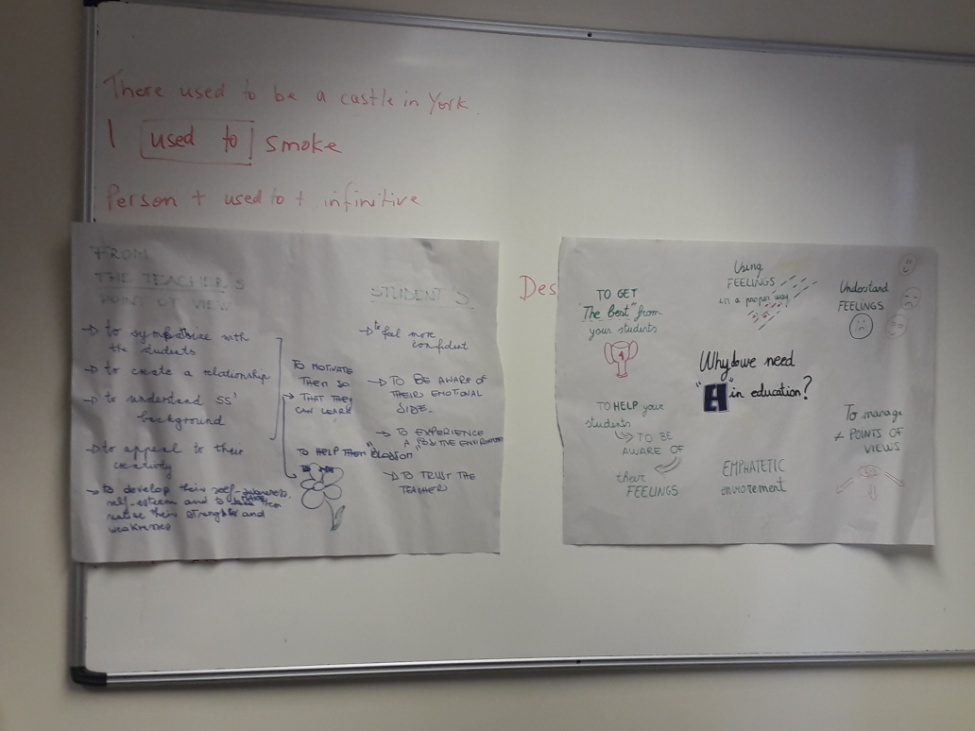 There used to be a castle in York.
I used to smoke
Person + used to + infinitive
FROM
THE TEACHER'S
POINT OF VIEW
→ to sympathise with
the students
→ to create a relationship
→ to understand SS'
background
→ to appeal to their
creativity
→ to develop their self-
self-esteem and to
their strenghts and
weaknesses
TO MOTIVATE
THEM SO
THAT THEY
CAN LEARN
TO HELP THEM "BLOSSOM"
STUDENT'S
→ to feel more
confident
→ TO BE AWARE OF
THEIR EMOTIONAL
SIDE.
→ TO EXPERIENCE
A POSITIVE ENVIRONMENT
→ TO TRUST THE
TEACHER
Des
TO GET
"The best" from
your students
1
Using
FEELINGS
in a proper way
Understand
FEELINGS
Why do we need
in education?
TO HELP your
students
→ TO BE
AWARE OF
their
FEELINGS
EMPHATETIC
enviorement
To manage
≠ POINTS OF
VIEWS